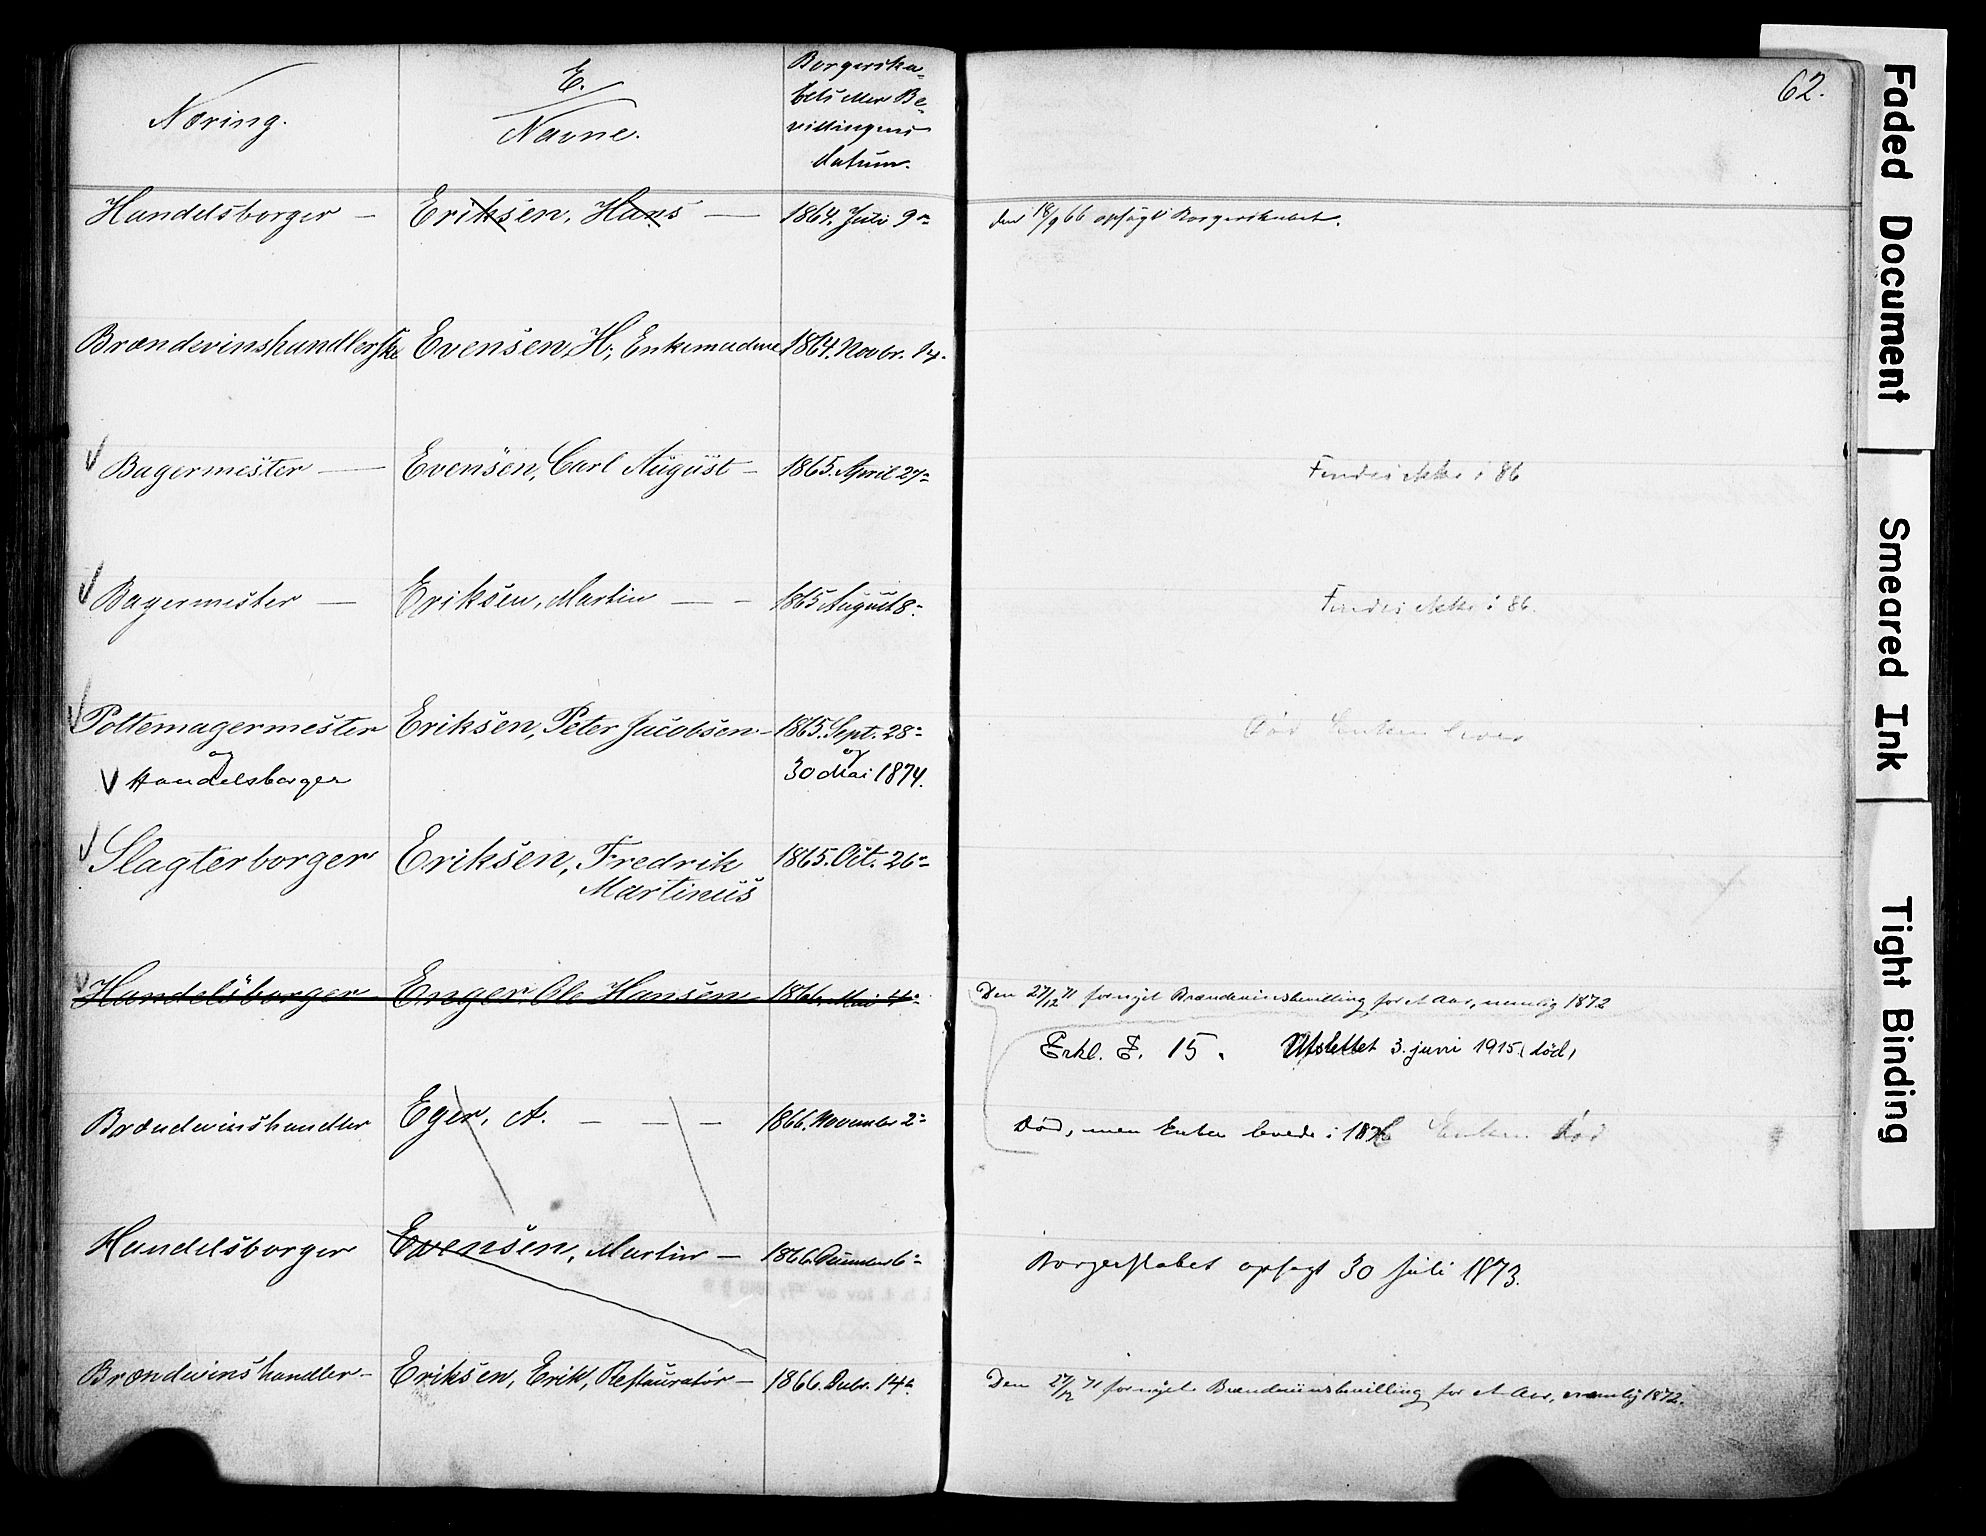 62.
E.
Næring.
Navne.
Borgerska-
bets eller Be-
villingens
datum.
Handelsborger — Eriksen, Hans — 1864. Juli 9de den 18/9 66 opsagt Borgerskabet.
Brændevinshandlerske Evensen, H., Enkemadme 1864. Novbr. 14.
V Bagermester — Evensen, Carl August — 1865. April 27- Findes ikke i 86
V Bagermester — Eriksen, Martin — — 1865 August 8- Findes ikke i 86.
V Pottemagermester Eriksen, Peter Jacobsen — 1865. Sept. 28- Død Enken lever
og og
V Handelsborger 30 Mai 1874.
V Slagterborger Eriksen, Fredrik 1865. Oct. 26-
Martinus
V Handelsborger Enger, Ole Hansen 1866. Mai 4- Den 27/12 71 fornyet Brændevinsbevilling for et Aar, nemlig 1872
Erkl. F. 15. Utslettet 3. juni 1915 (død)
Brændevinshandler Eger, A. — — — 1866. November 2- Død, men Enken levede i 1876 Enken død
Handelsborger Evensen, Martin — 1866. 6- Borgerskabet opsagt 30 Juli 1873.
Brændevinshandler — Eriksen, Erik, Restauratør — 1866. Decbr. 14- Den 27/12 71 fornyet Brændevinsbevilling for et Aar, nemlig 1872.
Faded Document
Smeared Ink
Tight Binding